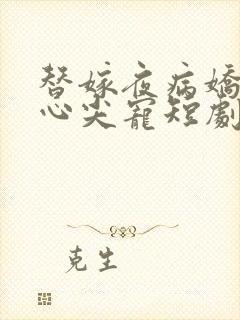 替嫁夜病嬌
心尖寵短劇
克生